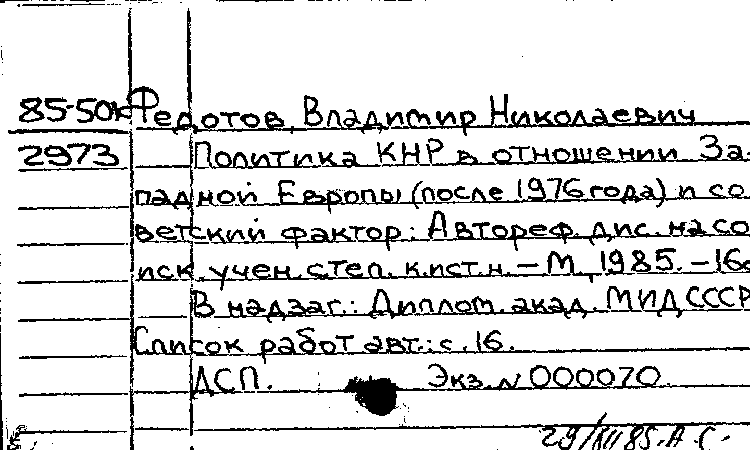 85-50к Федотов, Владимир Николаевич
2973 Политика КНР в отношении За-
падной Европы (после 1976 года) и со
ветский фактор: Автореф. дис. на со
иск. учен. степ. к.ист.н. – М., 1985. – 16с
В надзаг.: Диплом. акад. МИД СССР
Список работ авт.: с. 16.
ДСП. Экз. № 000070.
29/XII 85. А. С.